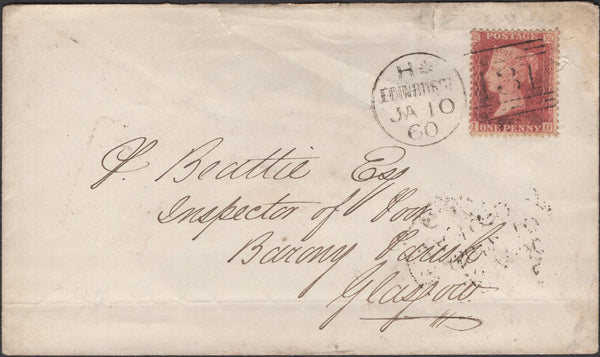 POSTAGE
131
ONE PENNY
H
EDINBURGH
JA 10
60
J. Beattie Esq
Inspector of Poor
Barony Parish
Glasgow